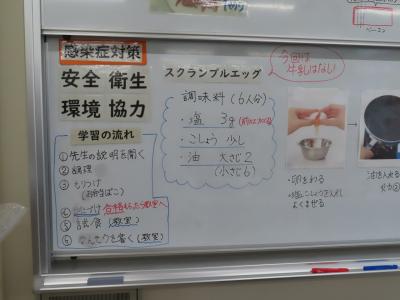 感染症対策
安全 衛生
環境 協力
学習の流れ
①先生の説明を聞く
②調理
③もりつけ
(お弁当ばこ)
④
合格もらったら教室へ
⑤試食(教室)
⑥ を書く(教室)
スクランブルエッグ
調味料(6人分)
・塩 3g
・こしょう 少し
・油 大さじ2
(小さじ6)
今回は
牛乳はなし!
・卵をわる
・塩こしょうを入れ
よくまぜる
油を入れ
ベーコン